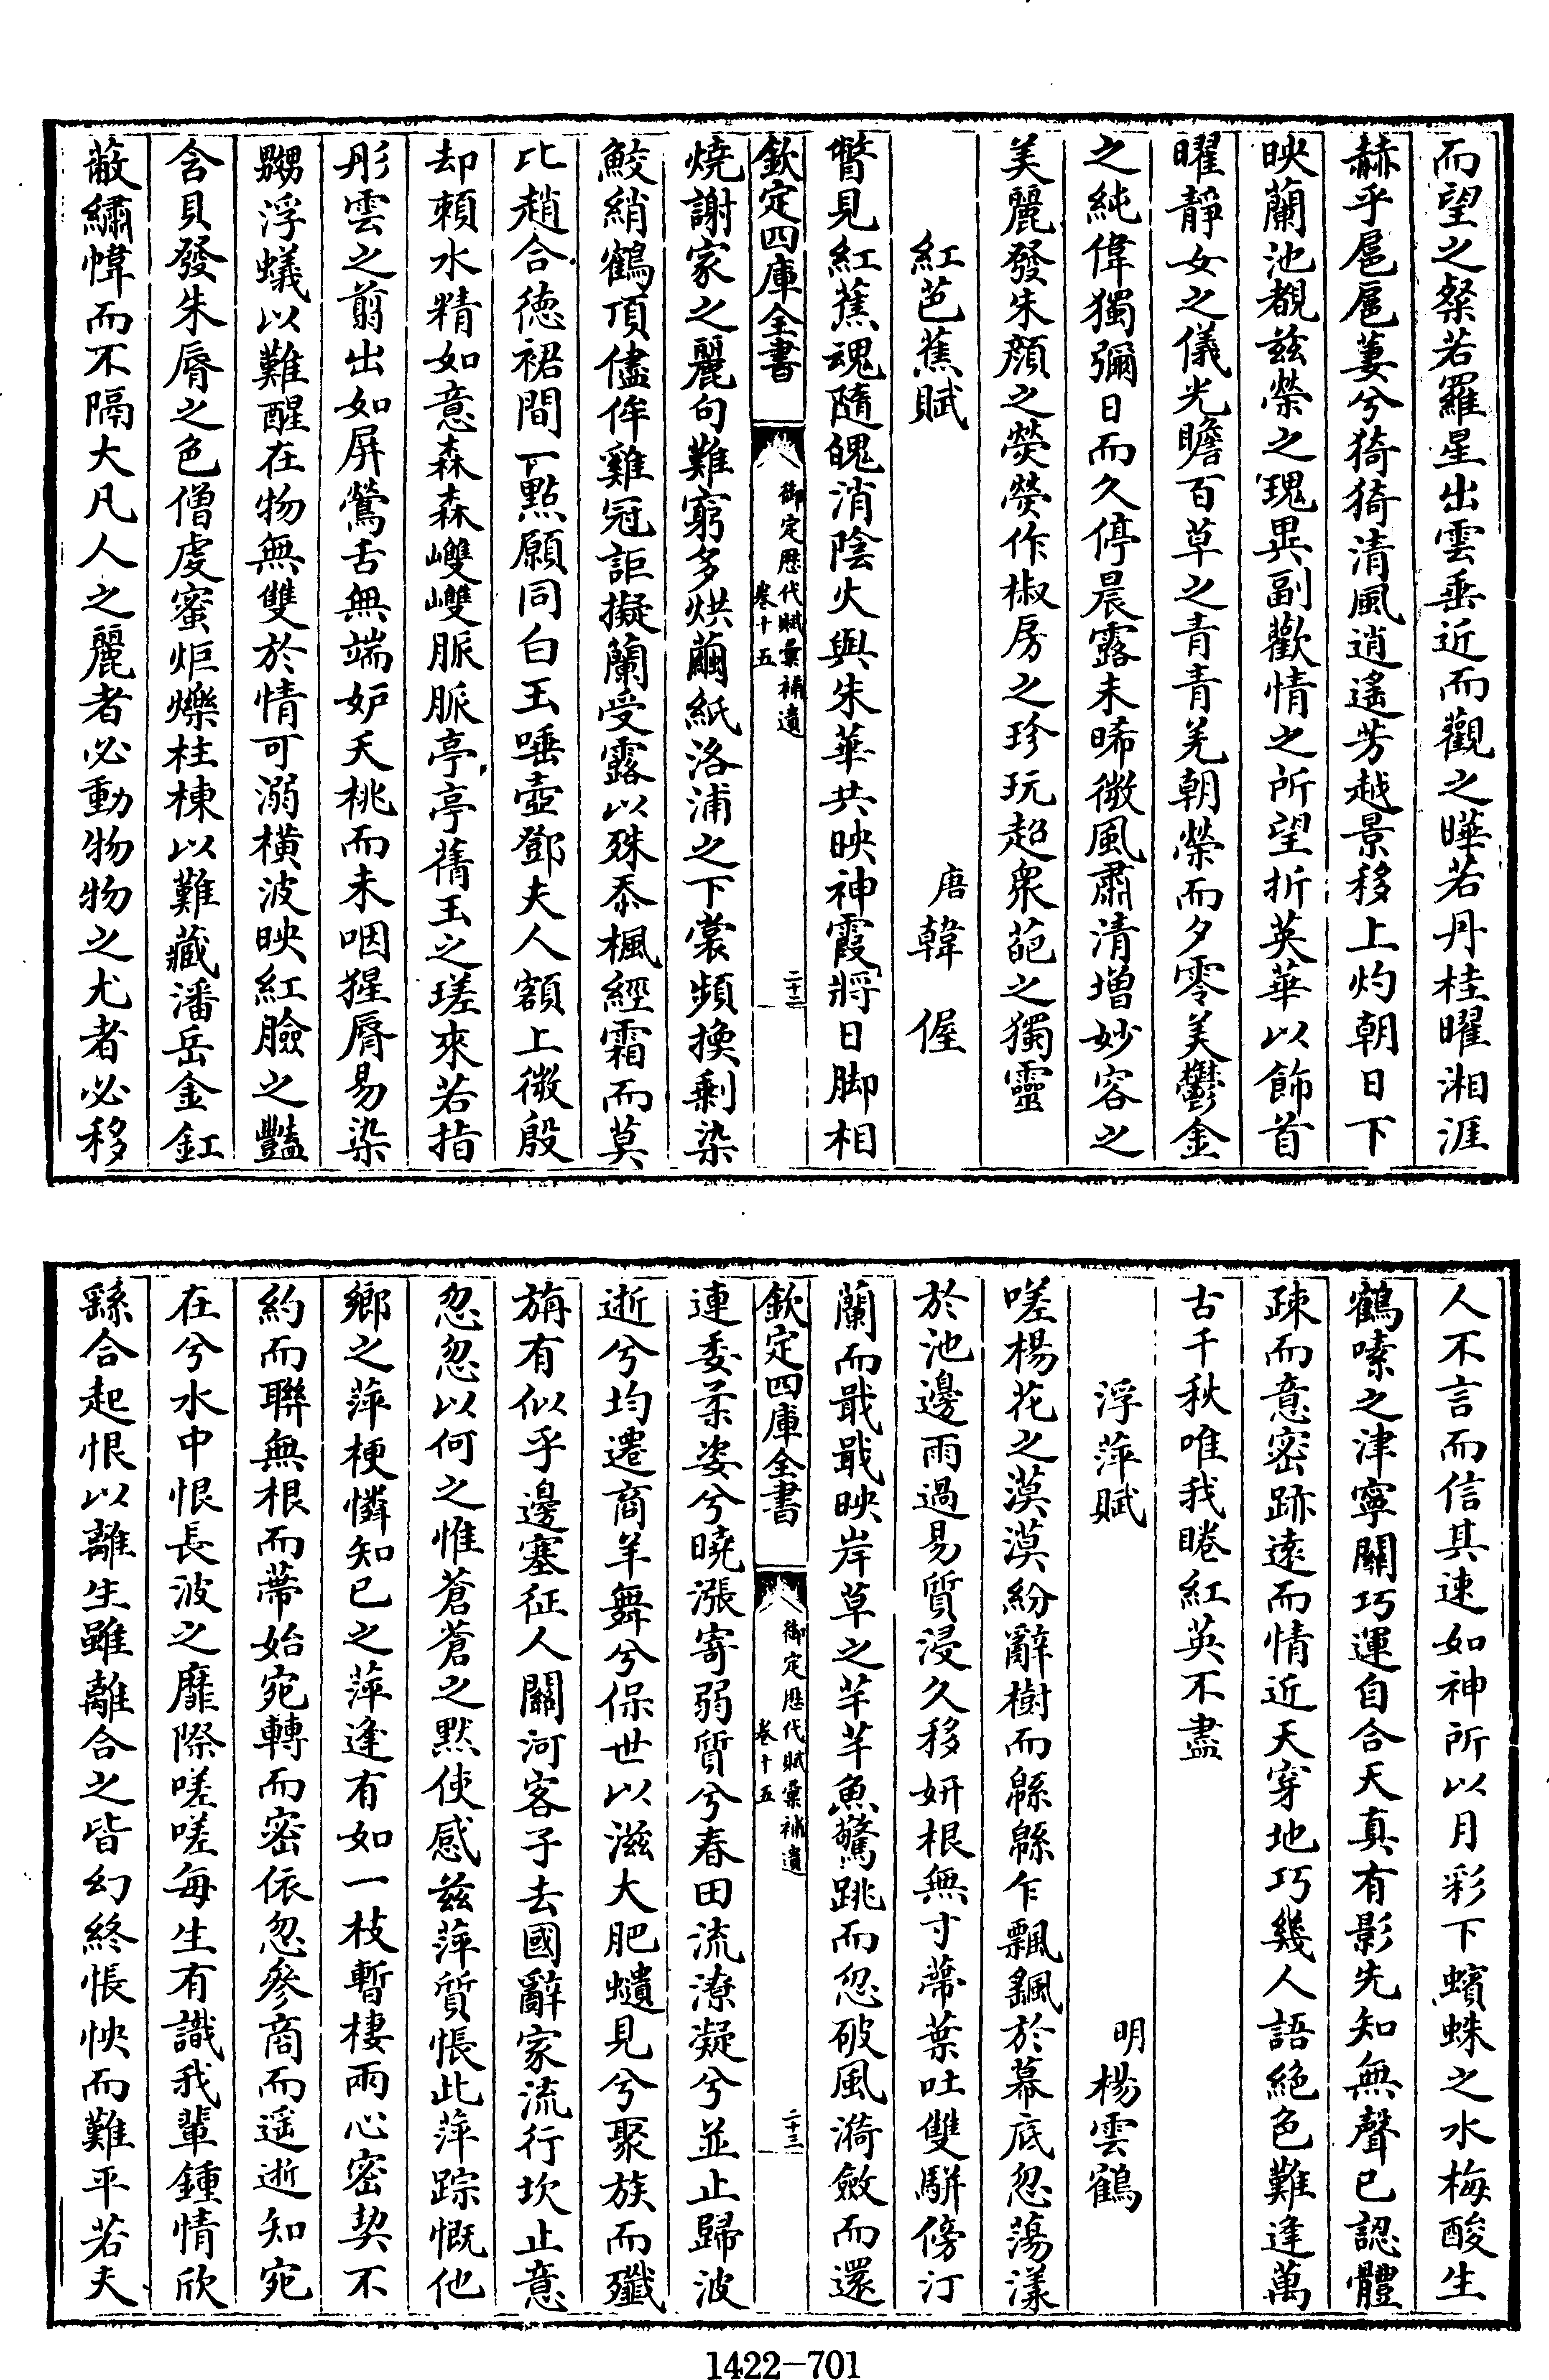 而望之粲若羅星出雲垂近而觀之曄若丹桂曜湘涯
赫乎扈扈萋兮猗猗清風逍遙芳越景移上灼朝日下
映蘭池覩兹榮之瑰異副歡情之所望折英華以飾首
曜靜女之儀光瞻百草之青青羌朝榮而夕零美鬱金
之純偉獨彌日而久停晨露未晞微風肅清增妙容之
美麗發朱顔之熒熒作椒房之珍玩超衆葩之獨靈
紅芭蕉賦
唐韓偓
瞥見紅蕉魂隨魄消陰火與朱華共映神霞將日脚相
欽定四庫全書
御定歷代賦彙補遺
卷十五
二十二
燒謝家之麗句難窮多烘繭紙洛浦之下裳頻換剩染
鮫綃鶴頂儘侔雞冠詎擬蘭受露以殊忝楓經霜而莫
比趙合德裙間一點願同白玉唾壺鄧夫人額上微殷
却賴水精如意森森㠉㠉脈脈亭亭蒨玉之瑳來若指
彤雲之翦出如屏鶯舌無端妒夭桃而未咽猩脣易染
嬲浮蟻以難醒在物無雙於情可溺横波映紅臉之豔
含貝發朱脣之色僧虔蜜炬爍柱棟以難藏潘岳金釭
蔽繡幃而不隔大凡人之麗者必動物物之尤者必移
人不言而信其速如神所以月彩下蠙蛛之水梅酸生
鶴嗉之津寧關巧運自合天真有影先知無聲已認體
疎而意密跡遠而情近天穿地巧幾人語絶色難逢萬
古千秋唯我睠紅英不盡
浮萍賦
明楊雲鶴
嗟楊花之漠漠紛辭樹而緜緜乍飄颻於幕底忽蕩漾
於池邊雨過易質浸久移妍根無寸蔕葉吐雙駢傍汀
蘭而戢戢映岸草之芊芊魚驚跳而忽破風漪斂而還
欽定四庫全書
御定歷代賦彙補遺
卷十五
二十三
連委柔姿兮曉漲寄弱質兮春田流潦凝兮並止歸波
逝兮均遷商羊舞兮保世以滋大肥䗽見兮聚族而殲
旃有似乎邊塞征人關河客子去國辭家流行坎止意
忽忽以何之惟蒼蒼之黙使感兹萍質悵此萍踪慨他
鄉之萍梗憐知已之萍逢有如一枝暫棲兩心密契不
約而聯無根而蔕始宛轉而密依忽參商而遥逝知宛
在兮水中恨長波之靡際嗟嗟每生有識我輩鍾情欣
繇合起恨以離生雖離合之皆幻終悵怏而難平若夫
1422—701